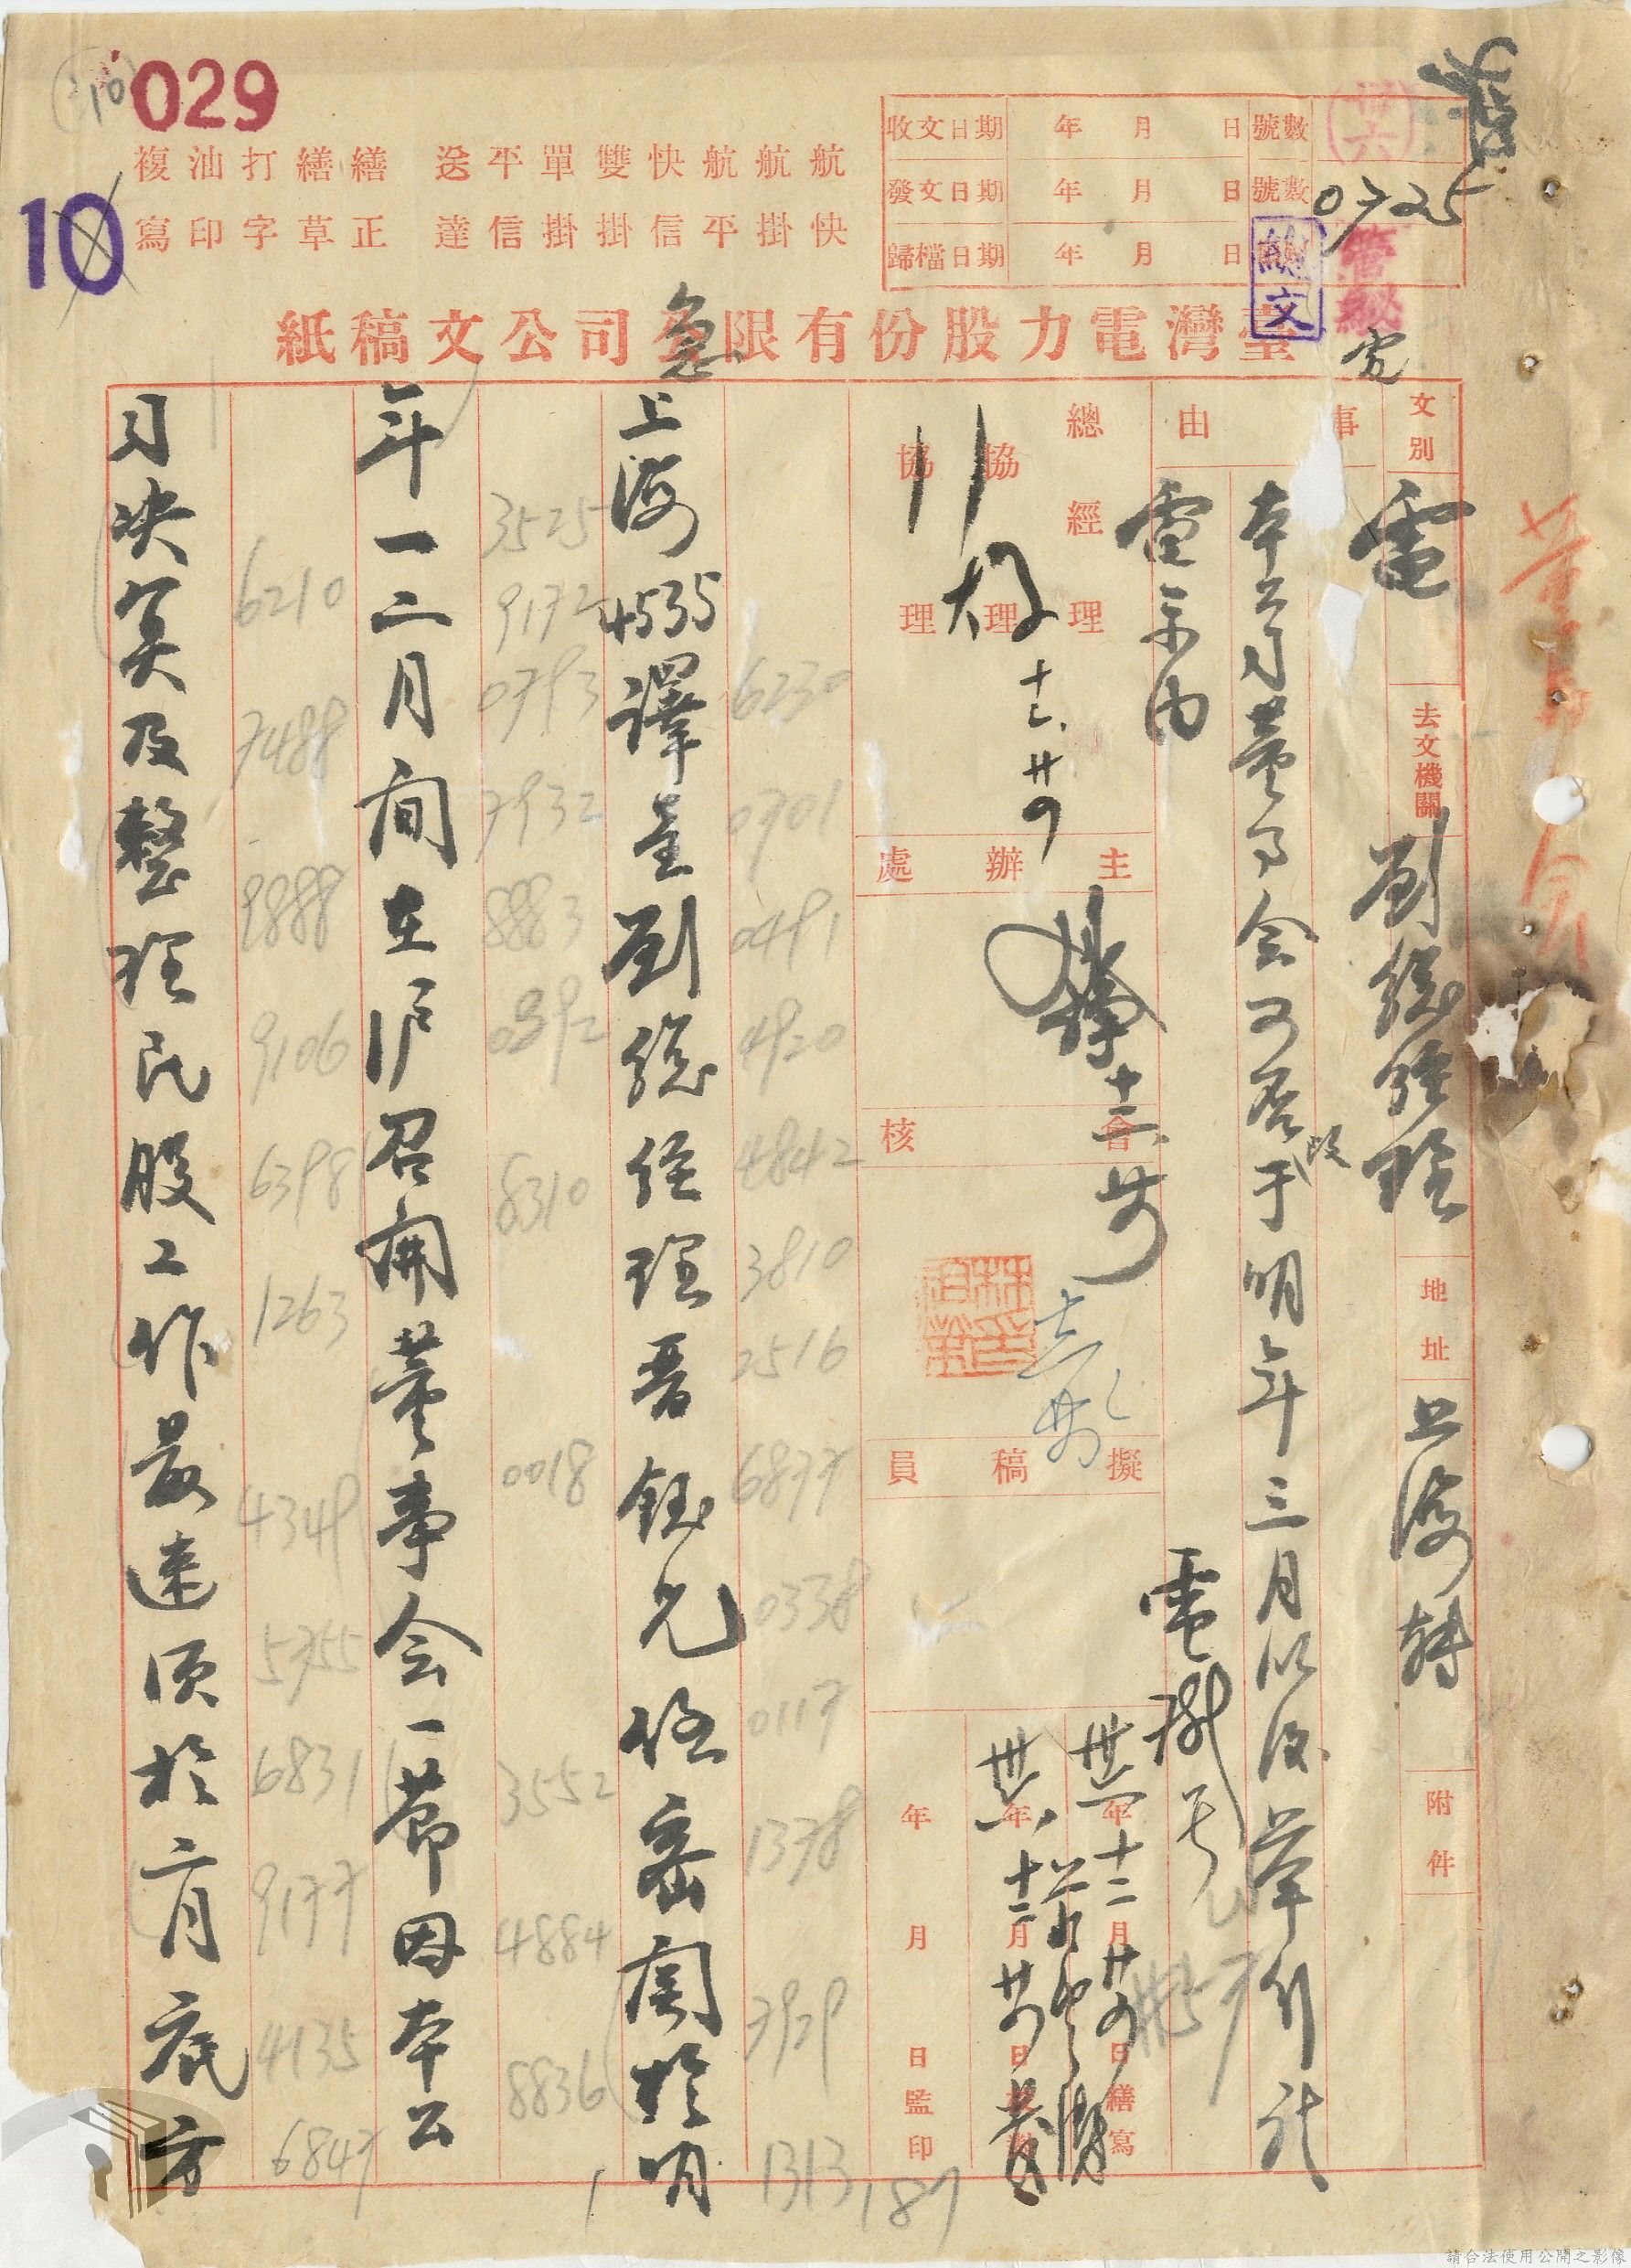 029
10
複寫 油印 打字 繕草 繕正 送達 平信 單掛 雙掛 快信 航平 航掛 航快
收文日期 年 月 日 號數
發文日期 年 月 日 號數 0725
歸檔日期 年 月 日
總文
臺灣電力股份有限公司文稿紙
急
文別 電 去文機關 劉總經理 地址 上海轉 附件
事由 本公司董事会可否改于明年三月以後舉行祈
電示由
總經理
協理
協理
主辦處
會核
擬稿員
年 月 日繕寫
年 月 日
年 月 日監印
6230 0701 0491 4920 4842 3810 2516 6877 0338 0117 1378 7929 1313
187
上海4535譯呈劉總經理晋鈺兄後密関於明
3525 9172 0793 7932 8883 0392 8310 0018 3552 4884 8836
年一二月间在沪召開董事会一節因本公
6210 7488 9888 9106 6398 1263 4349 5755 6831 9177 4135 6847
司决算及整理民股工作最速须於二月底方
請合法使用公開之影像